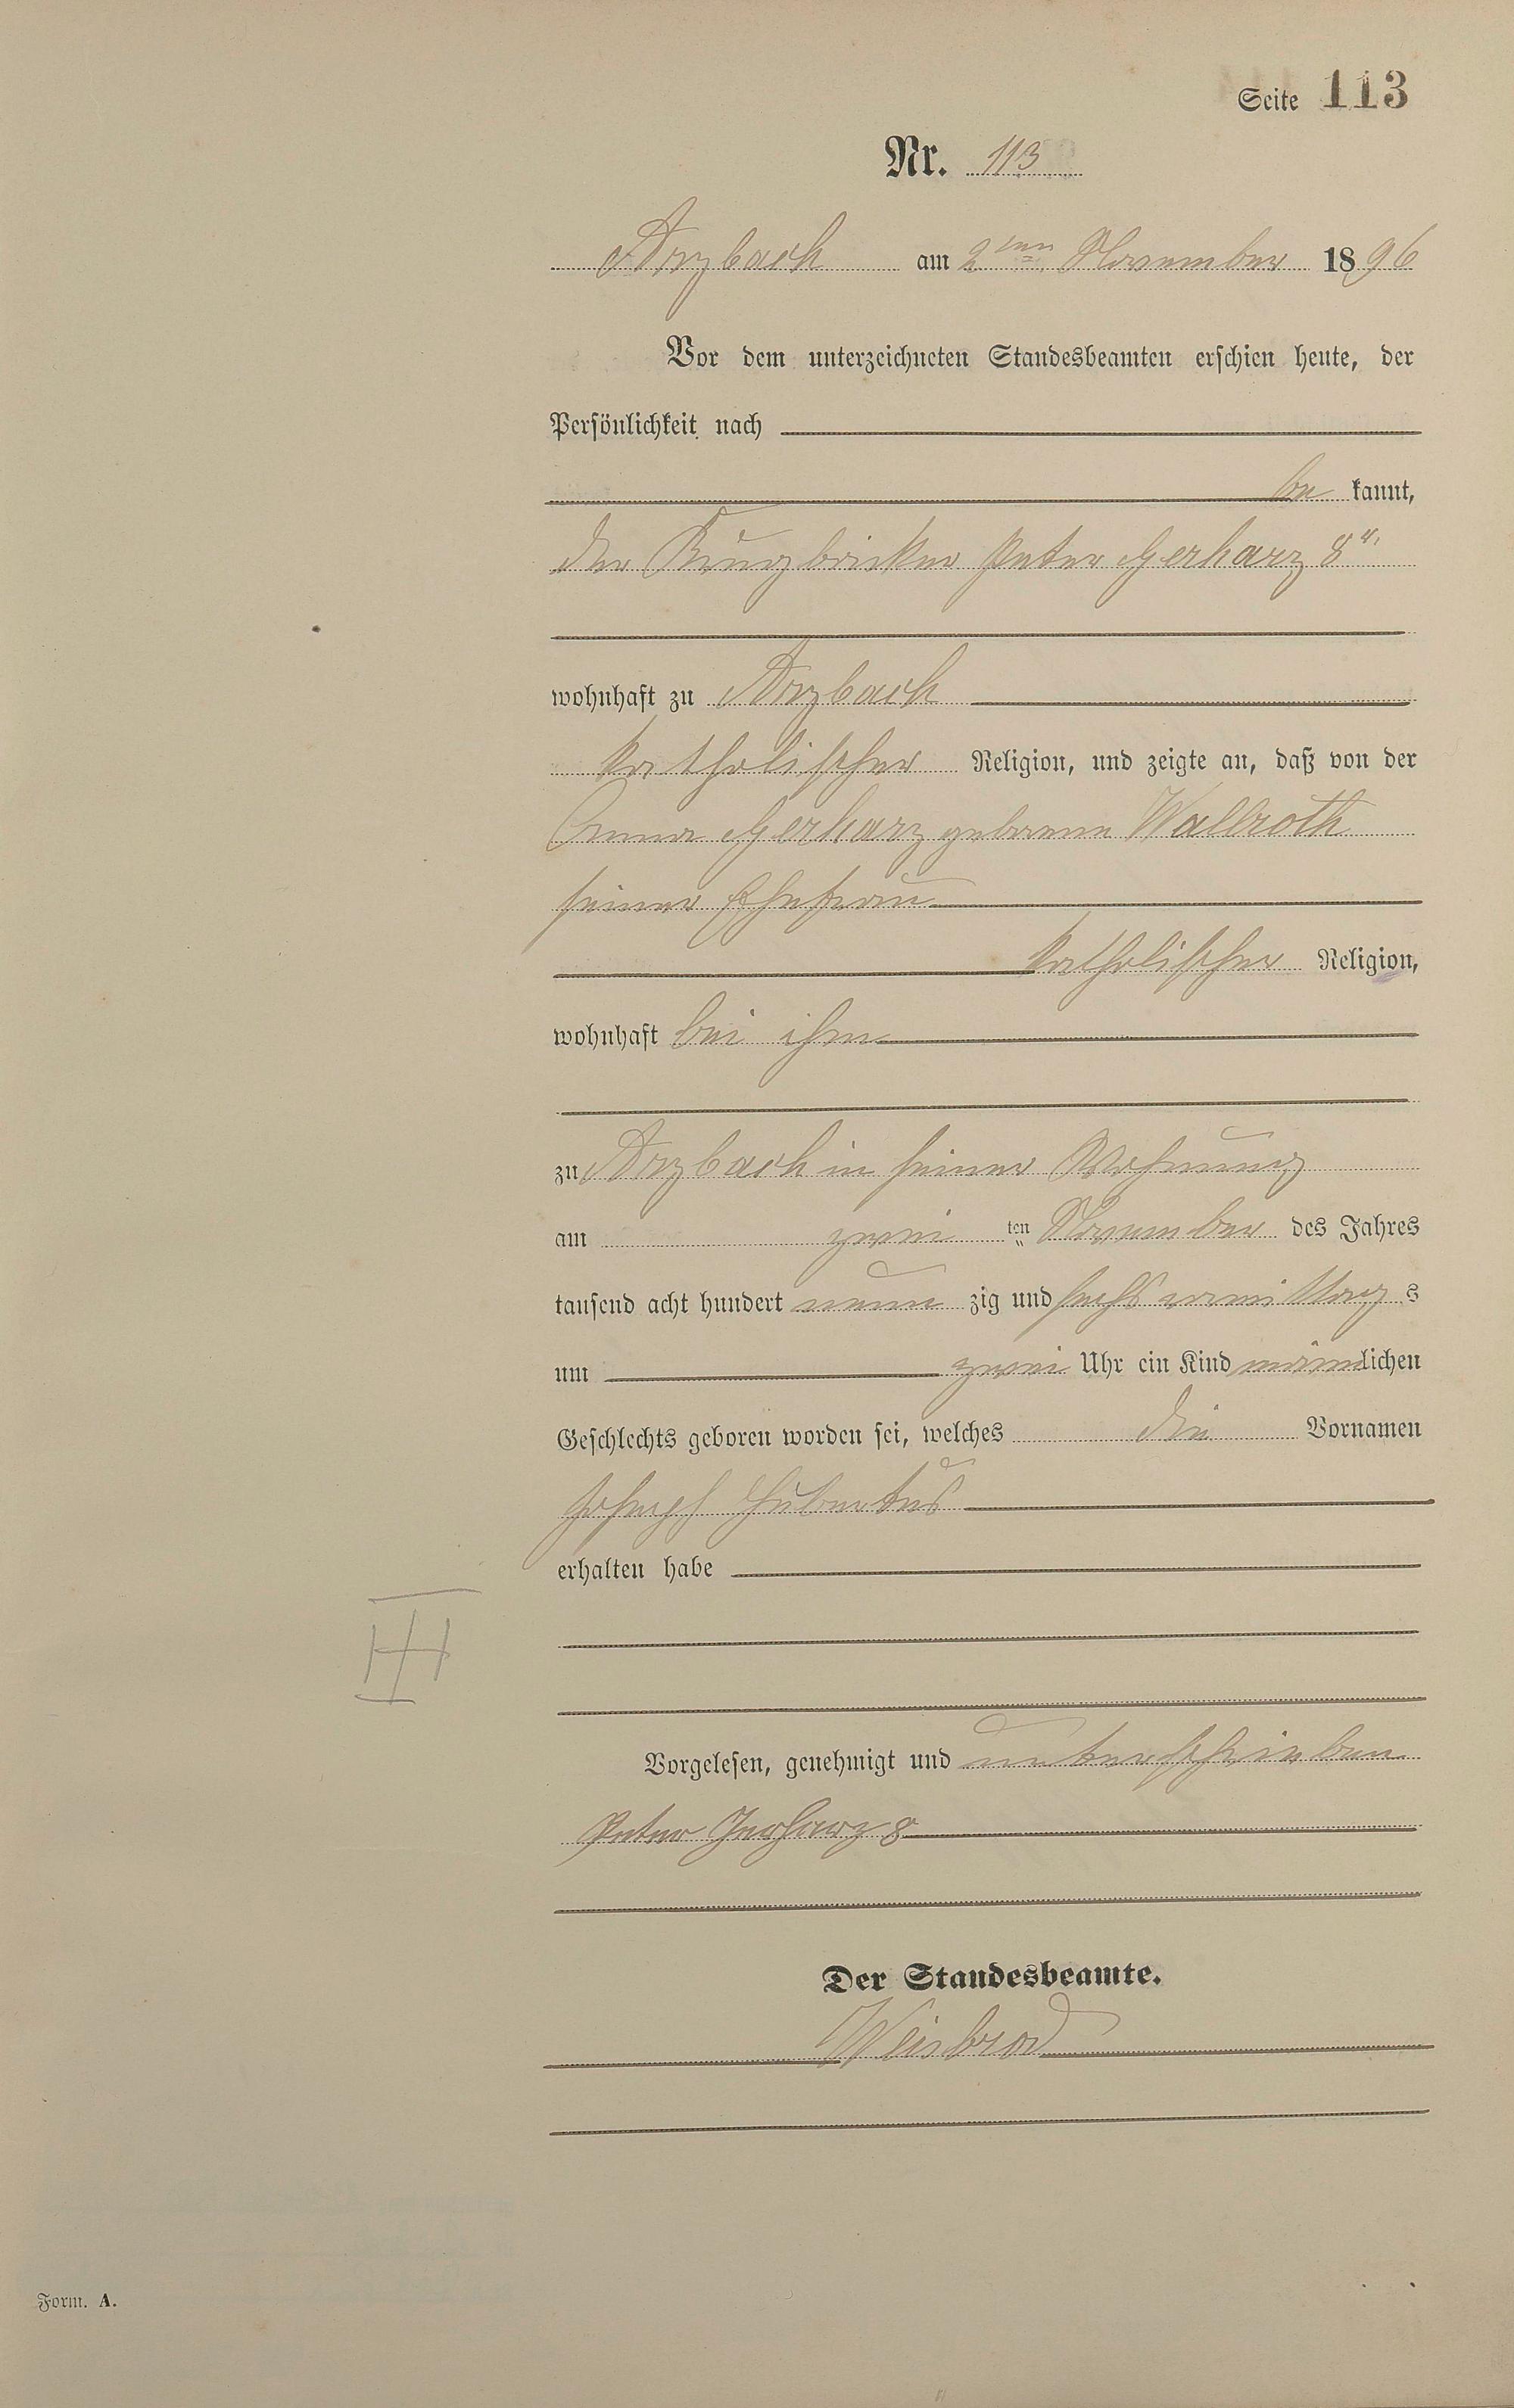 Seite 113
Nr. 113
Arzbach am 2ten November 1896
Vor dem unterzeichneten Standesbeamten erschien heute, der
Persönlichkeit nach
be kannt,
der Krugbäcker Peter Gerharz 8te
wohnhaft zu Arzbach
katholischer Religion, und zeigte an, daß von der
Anna Gerharz geborene Wallroth
seiner Ehefrau
katholischer Religion,
wohnhaft bei ihm
zu Arzbach in seiner Wohnung
am zwei ten November des Jahres
tausend acht hundert neun zig und sechs vormittags
um zwei Uhr ein Kind männlichen
Geschlechts geboren worden sei, welches die Vornamen
Joseph Hubertus
erhalten habe
Vorgelesen, genehmigt und unterschrieben
Peter Gerharz 8
Der Standesbeamte.
Weisbrod
Form. A.